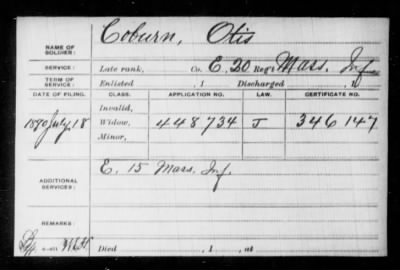 NAME OF SOLDIER: Coburn, Otis
SERVICE: Late rank, Co. E, 20 Reg't Mass. Inf
TERM OF SERVICE: Enlisted , 1 Discharged , 1
DATE OF FILING. CLASS. APPLICATION NO. LAW. CERTIFICATE NO.
Invalid,
1890 July 18 Widow, 448734 J 346147
Minor,
ADDITIONAL SERVICES: E. 15 Mass. Inf.
REMARKS:
Died , 1 , at